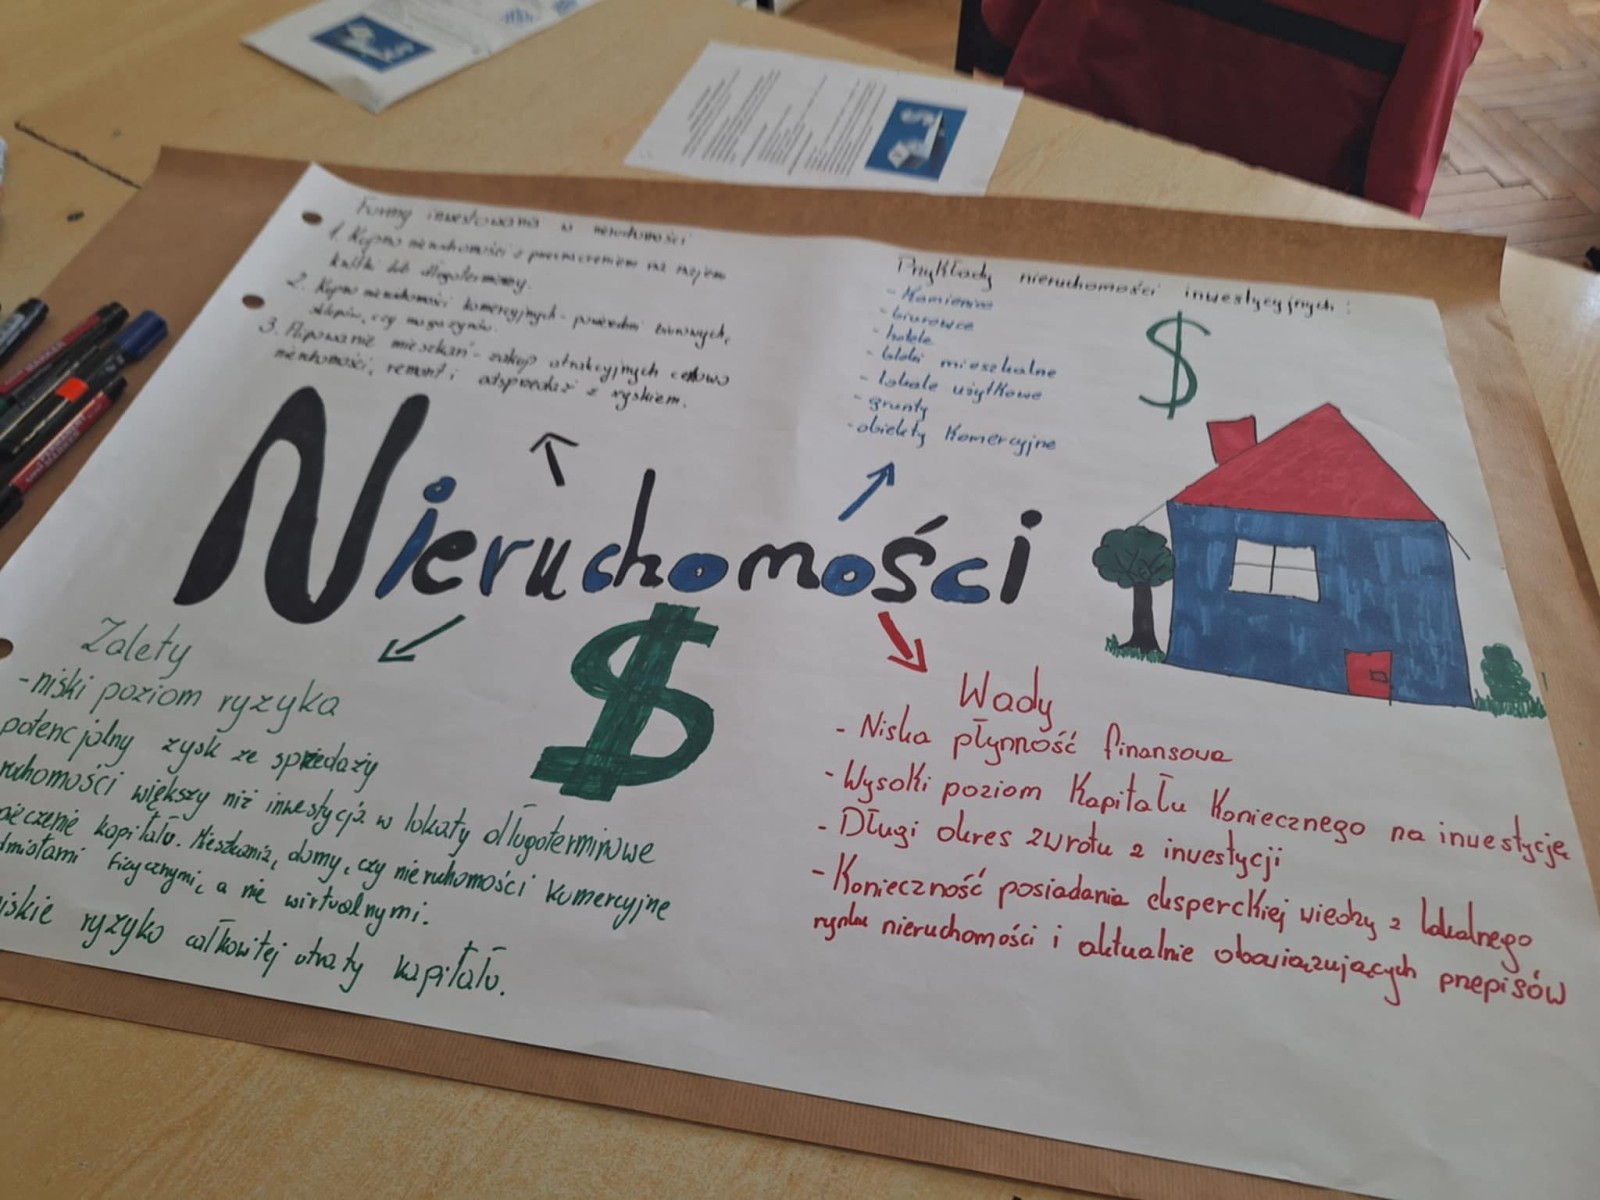 Formy inwestowania w nieruchomości
1. Kupno nieruchomości z przeznaczeniem na najem
krótki lub długoterminowy.
2. Kupno nieruchomości komercyjnych - powierzchni biurowych,
sklepów, czy magazynów.
3. Flipowanie mieszkań - zakup atrakcyjnych cenowo
nieruchomości, remont i odsprzedaż z zyskiem.
Przykłady nieruchomości inwestycyjnych:
- Kamienice
- biurowce
- hotele
- bloki mieszkalne
- lokale użytkowe
- grunty
- obiekty komercyjne
$
Nieruchomości
$
Zalety
- niski poziom ryzyka
potencjalny zysk ze sprzedaży
ruchomości większy niż inwestycja w lokaty długoterminowe
kapitału. Mieszkania, domy, czy nieruchomości komercyjne
fizycznymi, a nie wirtualnymi.
ryzyko całkowitej utraty kapitału.
Wady
- Niska płynność finansowa
- Wysoki poziom Kapitału Koniecznego na inwestycje
- Długi okres zwrotu z inwestycji
- Konieczność posiadania eksperckiej wiedzy z lokalnego
rynku nieruchomości i aktualnie obowiązujących przepisów